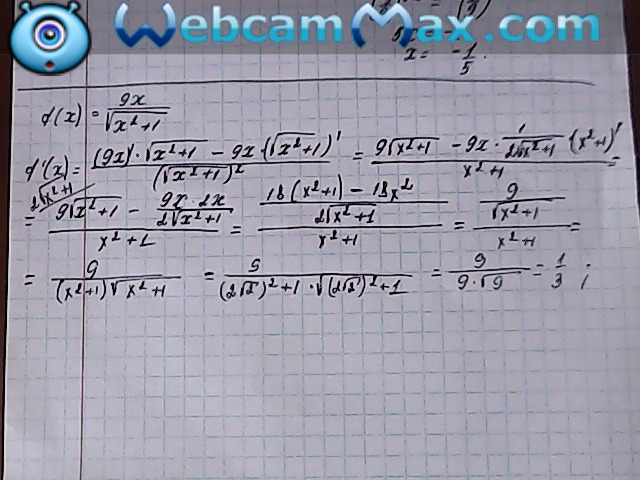 WebcamMax.com
5x
x = -1/5.
f(x) = 9x/√(x²+1)
f'(x) = ((9x)' · √(x²+1) - 9x · (√(x²+1))')/(√(x²+1))² = (9√(x²+1) - 9x · 1/(2√(x²+1)) · (x²+1)')/(x²+1) =
2√(x²+1)
= (9√(x²+1) - (9x · 2x)/(2√(x²+1)))/(x²+1) = ((18(x²+1) - 18x²)/(2√(x²+1)))/(x²+1) = (9/√(x²+1))/(x²+1) =
= 9/((x²+1)√(x²+1)) = 9/((2√2)²+1 · √((2√2)²+1)) = 9/(9·√9) = 1/3 ;